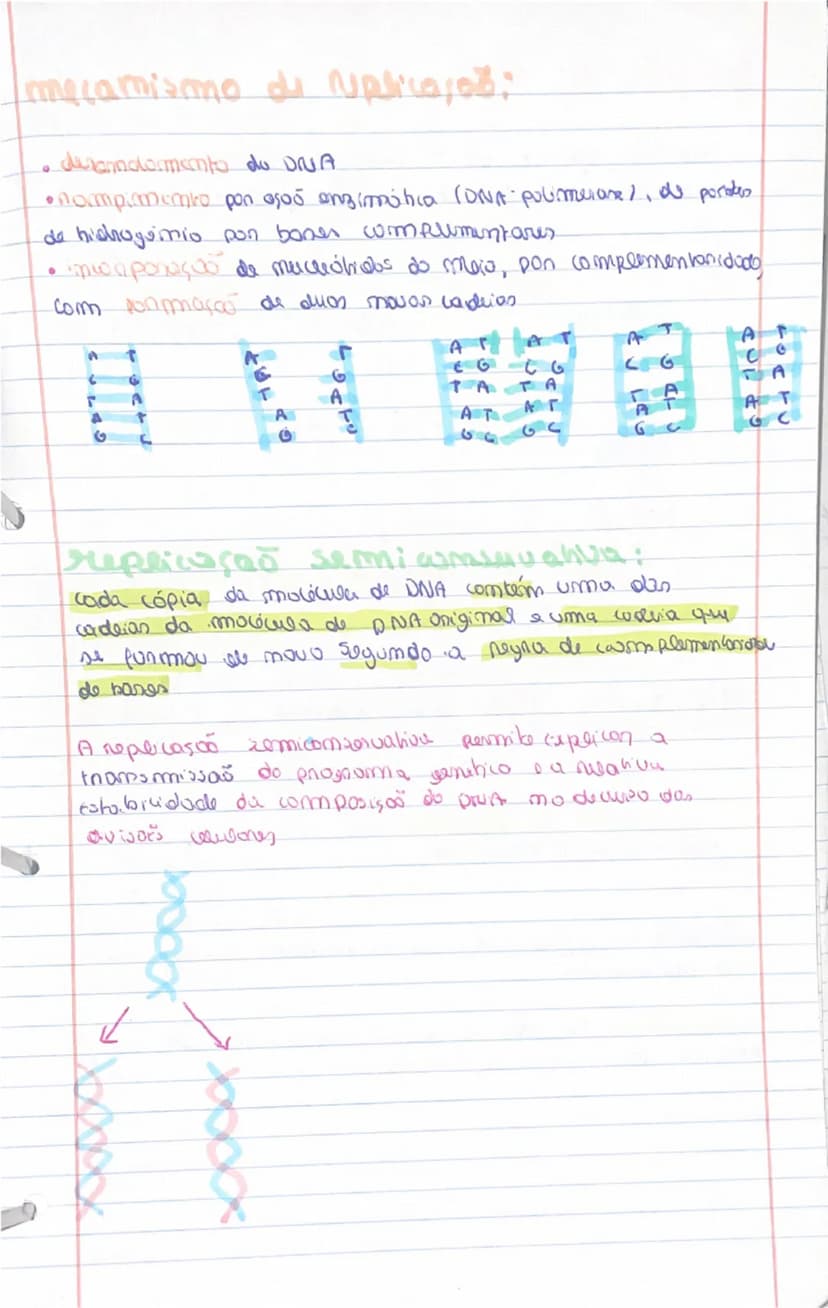 mecanismo de replicação:
• desenrolamento do DNA
• rompimento por ação enzimática (DNA-polimerase), de pontes
de hidrogénio por bases complementares
• incorporação de nucleótidos do meio, por complementaridade,
com formação de duas novas cadeias
A T A T A T A T A T A T
C G G G C G C G C G C G
T A T A T A T A T A T A
A T A T A T A T A T A T
G C G C G C G C G C G C
replicação semiconservativa:
cada cópia da molécula de DNA contém uma das
cadeias da molécula de DNA original e uma cadeia que
se formou de novo segundo a regra de complementaridade
de bases
A replicação semiconservativa permite explicar a
transmissão do programa genético e a relativa
estabilidade da composição do DNA no decurso das
divisões celulares